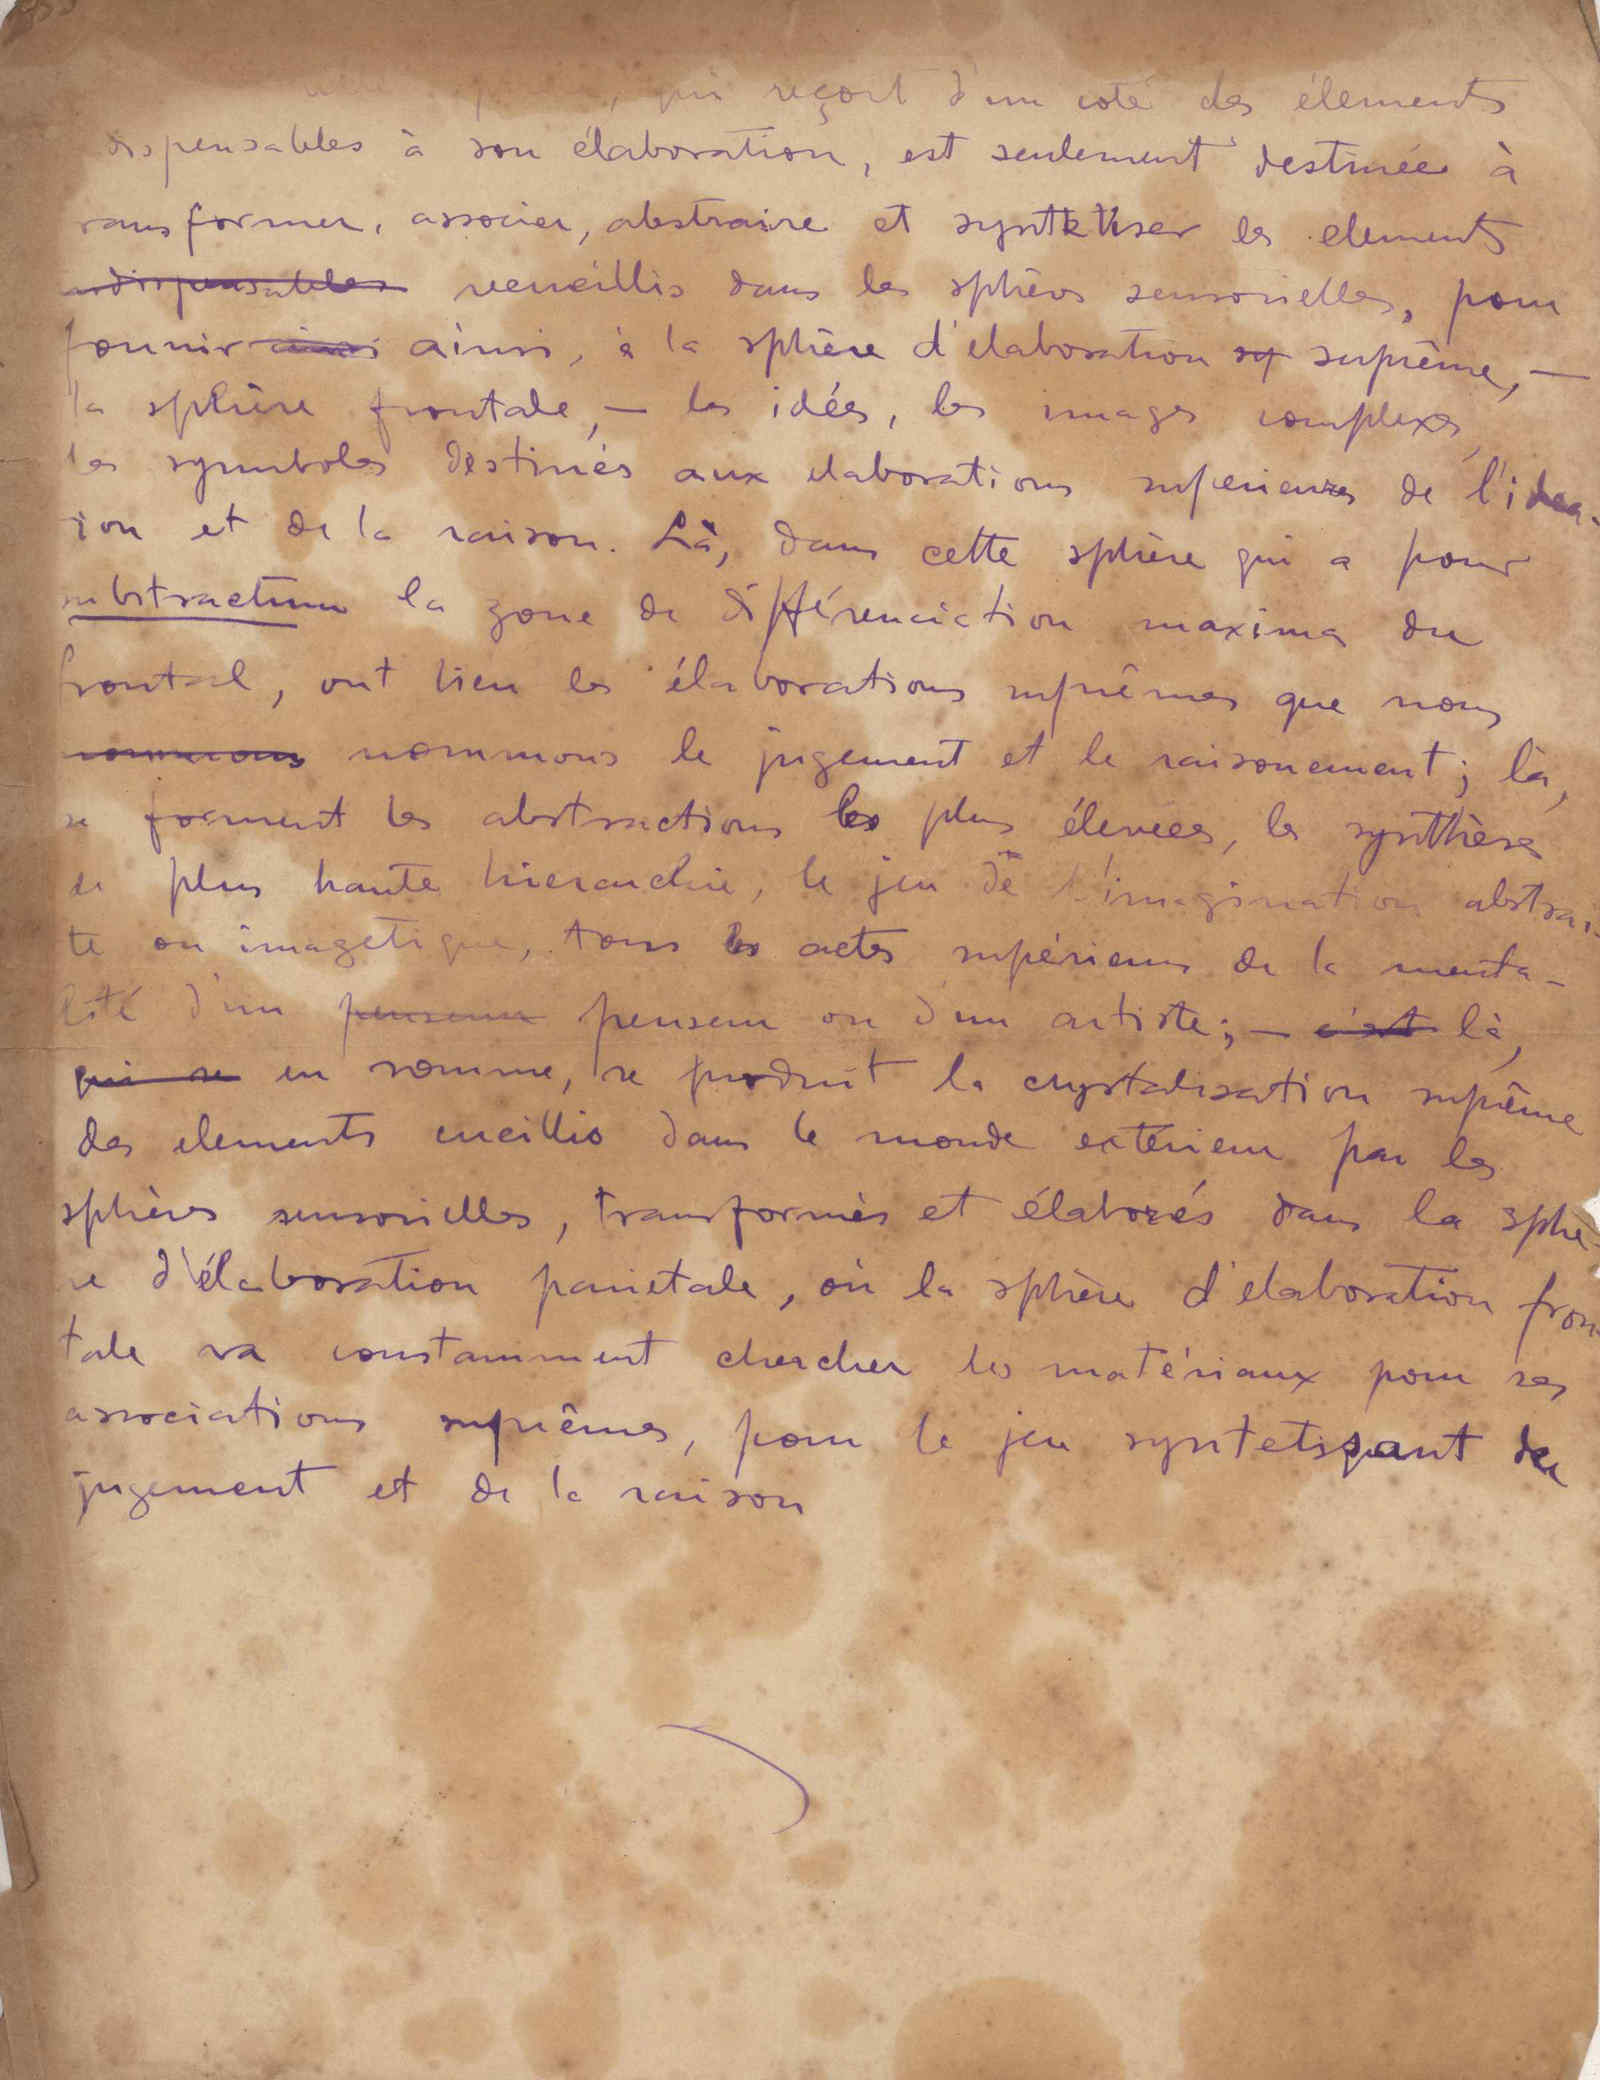 , qui reçoit d'un coté des élements
dispensables à son élaboration, est seulement destinée à
ransformer, associer, abstraire et synthetiser les elements
indispensables recueillis dans les sphères sensorielles, pour
fournir ainsi ainsi, à la sphère d'elaboration sy suprême, —
la sphère frontale, — les idées, les images complexes,
les symboles destinés aux elaborations superieures de l'idea-
ion et de la raison. Là, dans cette sphère qui a pour
substractum la zone de différenciation maxima du
frontal, ont lieu les élaborations suprêmes que nous
nommons nommons le jugement et le raisonement; là,
se forment les abstractions les plus élevées, les synthèses
de plus haute hierarchie, le jeu de l'imagination abstrai-
te ou imagétique, tous les actes supérieurs de la menta-
lité d'un penseur penseur ou d'un artiste; — c'est là,
qui se en somme, se produit la crystalisation suprême
des elements cueillis dans le monde extérieur par les
sphères sensorielles, transformés et élaborés dans la sphè-
re d'élaboration parietale, où la sphère d'elaboration fron-
tale va constamment chercher les matériaux pour ses
associations suprêmes, pour le jeu syntetisant du
jugement et de la raison